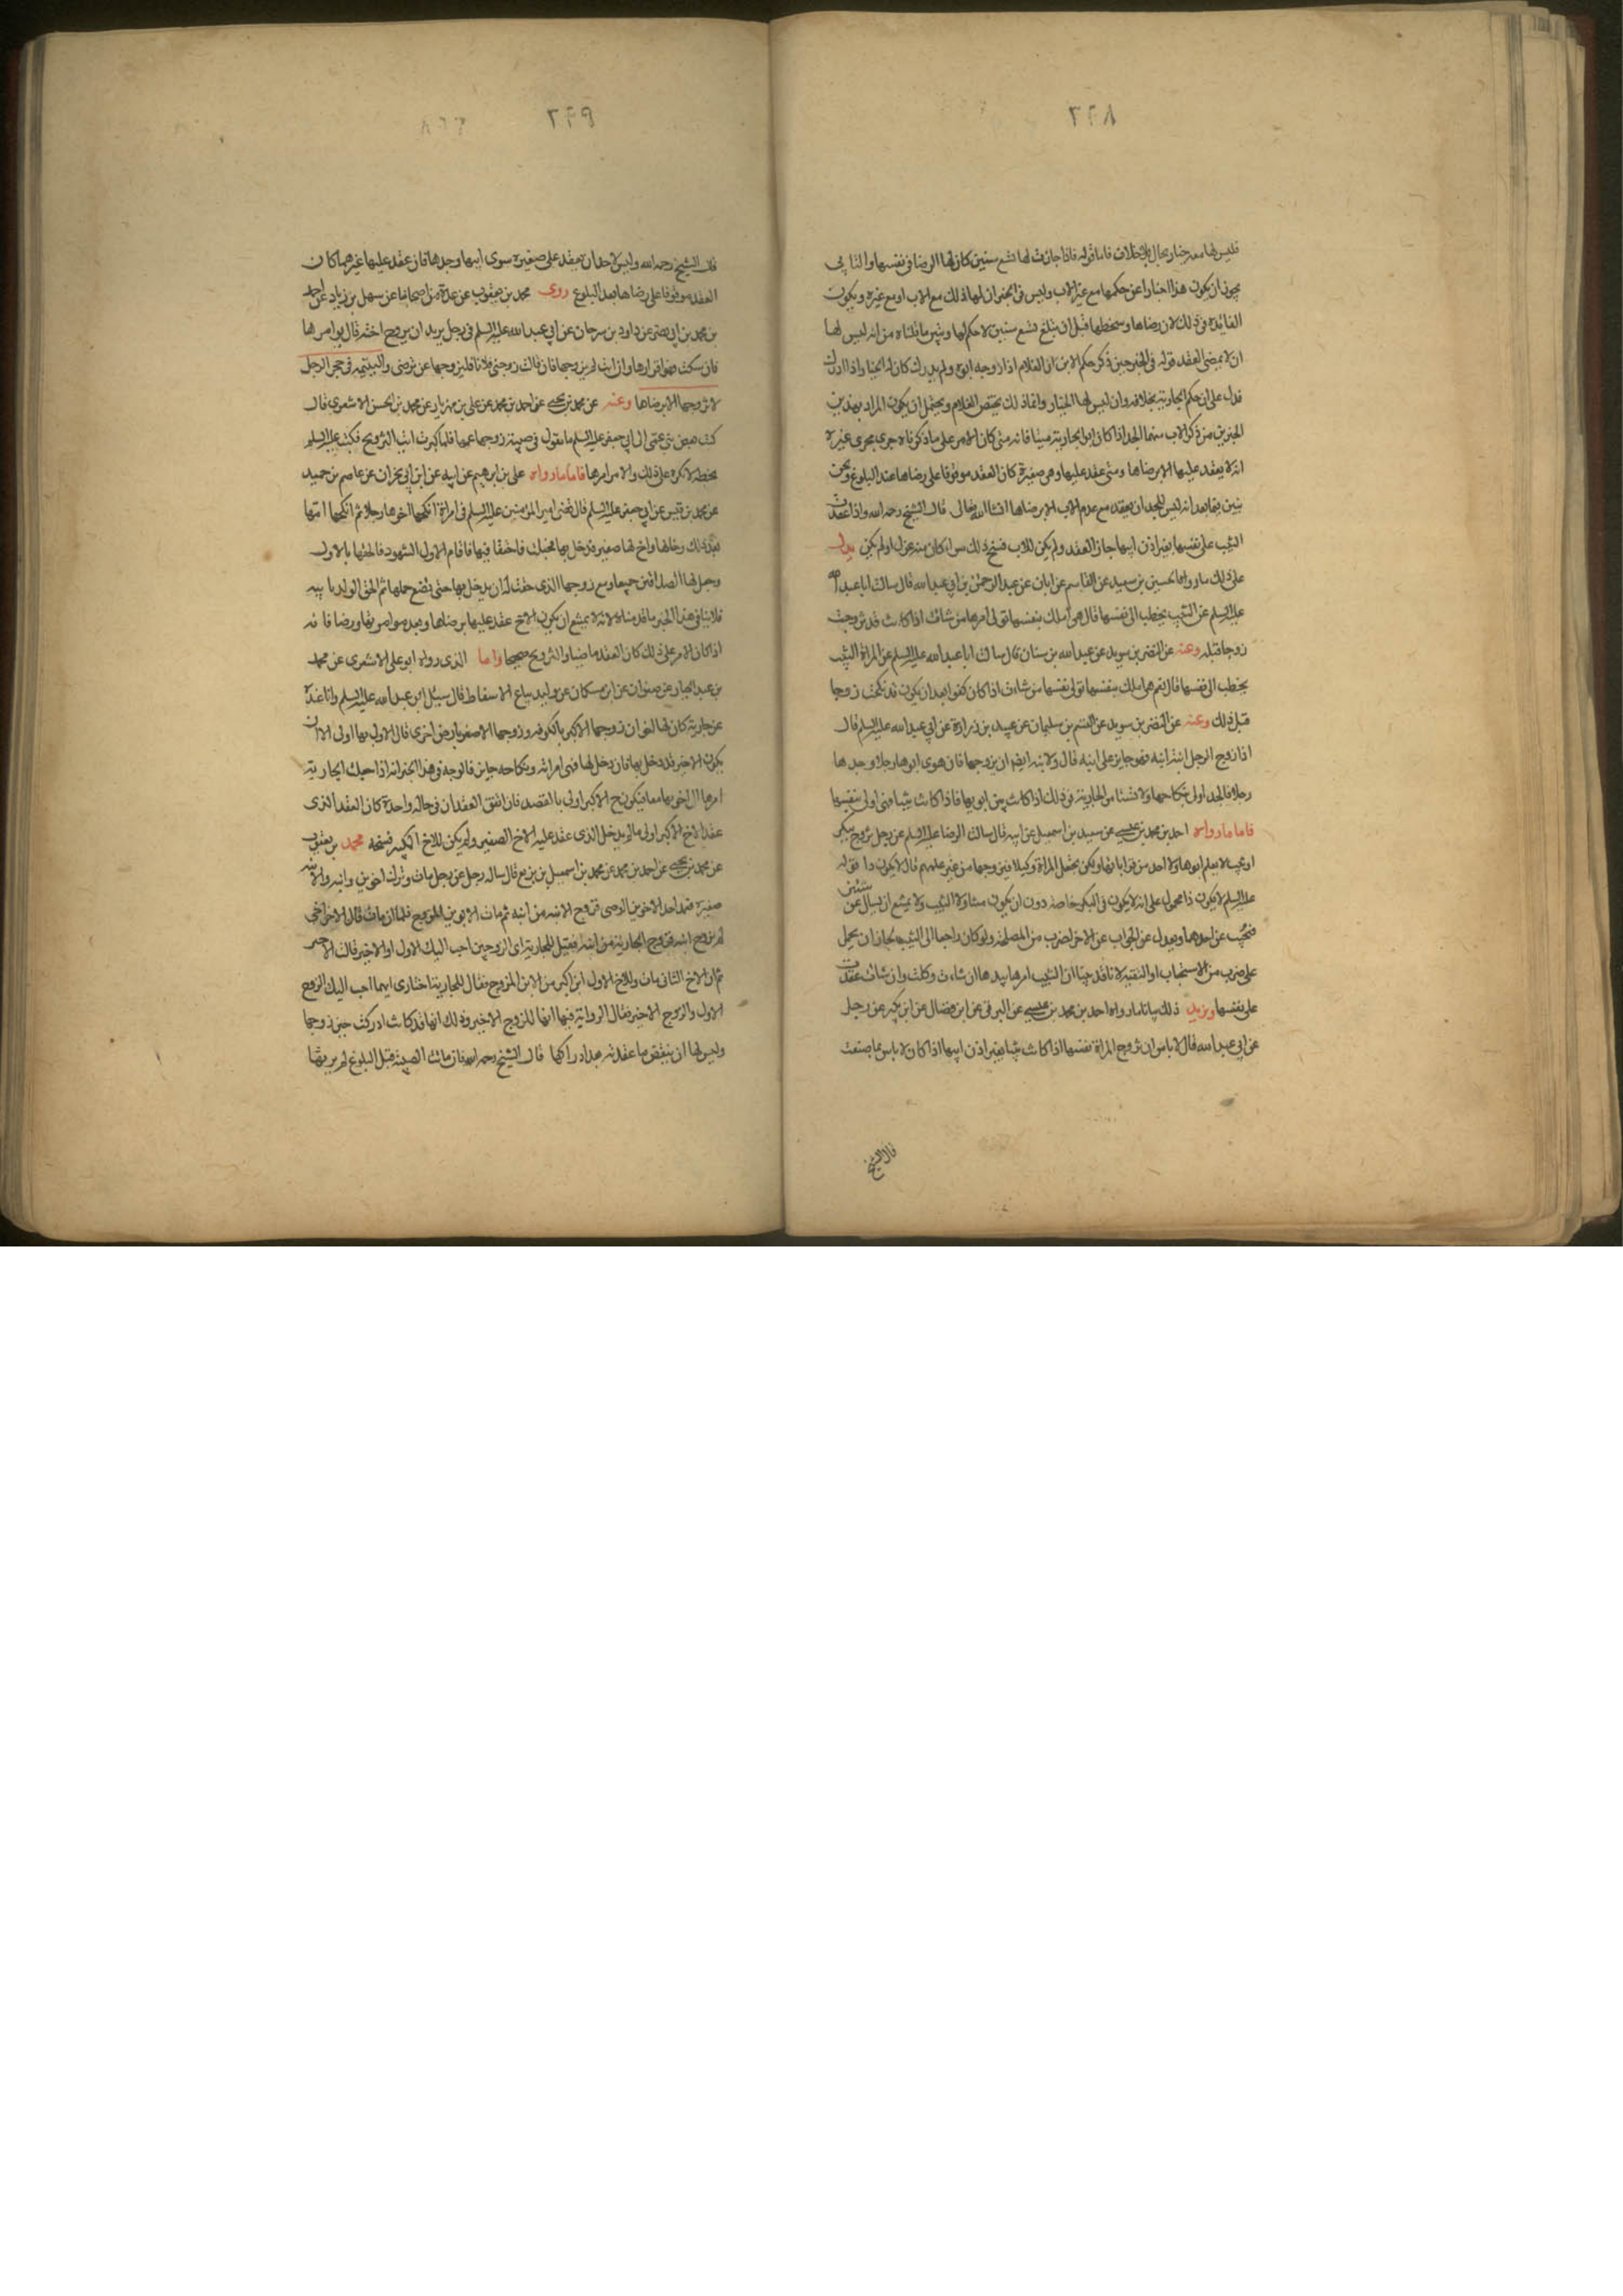 فليس لها معه خيار بحال بلا خلاف فاما قوله فاذا جازت لها تسع سنين كان لها الرضا في نفسها والتابى
يجوز ان يكون هذا اخبارا عن حكمها مع غير الاب وليس في الخبر ان لها ذلك مع الاب او مع غيره ويكون
الفائدة في ذلك لان رضاها وسخطها قبل ان تبلغ تسع سنين لا حكم لها ويبين ما قلناه من انه ليس لها
ان لا يمضى العقد قوله في الخبر حين ذكر حكم الابن ان الغلام اذا زوجه ابوه ولم يدرك كان له الخيار اذا ادرك
فدل على ان حكم الجارية بخلافه وان ليس لها الخيار وانما ذلك يختص الغلام ويحتمل ان يكون المراد بهذين
الخبرين من ذكر الاب منهما الجد اذا كان ابو الجارية ميتا فانه متى كان الامر على ما ذكرناه جرى مجرى غيره
انه لا يعقد عليها الا برضاها ومتى عقد عليها وهي صغيرة كان العقد موقوفا على رضاها عند البلوغ ونحن
نبين فيما بعد انه ليس للجد ان يعقد مع عدم الاب الا برضاها ان شا الله تعالى قال الشيخ رحمه الله واذا عقدت
الثيب على نفسها بغير اذن ابيها جاز العقد ولم يكن للاب فسخ ذلك سواء كان منه عزل او لم يكن يدل
على ذلك ما رواه الحسين بن سعيد عن القاسم عن ابان عن عبد الرحمن بن ابي عبد الله قال سالت ابا عبد الله
عليه السلم عن الثيب يخطب الى نفسها قال هي املك بنفسها تولى امرها من شاءت اذا كانت قد تزوجت
زوجا قبله وعنه عن النضر بن سويد عن عبد الله بن سنان قال سالت ابا عبد الله عليه السلم عن المراة الثيب
يخطب الى نفسها قال نعم هي املك بنفسها تولى نفسها من شاءت اذا كان كفوا بعد ان يكون قد نكحت زوجا
قبل ذلك وعنه عن النضر بن سويد عن القسم بن سليمان عن عبيد بن زرارة عن ابي عبد الله عليه السلم قال
اذا زوج الرجل ابنة ابنه فهو جايز على ابنه قال ولابنه ايضا ان يزوجها فان هوى ابوها رجلا وجدها
رجلا فالجد اولى بنكاحها ولا تستامر الجارية في ذلك اذا كانت بين ابويها فاذا كانت ثيبا فهي اولى بنفسها
فاما ما رواه احمد بن محمد بن عيسى عن سعيد بن اسمعيل عن ابيه قال سالت الرضا عليه السلم عن رجل تزوج ببكر
او ثيب لا يعلم ابوها ولا احد من قراباتها ولكن تجعل المراة وكيلا فيزوجها من غير علمهم قال لا يكون ذا فقوله
عليه السلم لا يكون ذا محمول على انه لا يكون في البكر خاصة دون ان يكون متناولا للثيب ولا يمتنع ان يسال عن شيئين
فيجيب عن احدهما ويعدل عن الجواب عن الاخر لضرب من المصلحة ولو كان راجعا الى الثيب لجاز ان يحمل
على ضرب من الاستحباب او التقية لانا قد بينا ان الثيب امرها بيدها ان شاءت وكلت وان شاءت عقدت
على نفسها ويزيد ذلك بيانا ما رواه احمد بن محمد بن عيسى عن البرقي عن ابن فضال عن ابن بكير عن رجل
عن ابي عبد الله قال لا باس ان تزوج المراة نفسها اذا كانت ثيبا بغير اذن ابيها اذا كان لا باس بما صنعت
قال الشيخ
قال الشيخ رحمه الله وليس لاحد ان يعقد على صغيرة سوى ابيها وجدها فان عقد عليها غيرهما كان
العقد موقوفا على رضاها بعد البلوغ روى محمد بن يعقوب عن عدة من اصحابنا عن سهل بن زياد عن احمد
بن محمد بن ابي نصر عن داود بن سرحان عن ابي عبد الله عليه السلم في رجل يريد ان يزوج اخته قال يوامرها
فان سكتت فهو اقرارها وان ابت لم يزوجها فان قالت زوجني فلانا فليزوجها ممن ترضى واليتيمة في حجر الرجل
لا يزوجها الا برضاها وعنه عن محمد بن يحيى عن احمد بن محمد عن علي بن مهزيار عن محمد بن الحسن الاشعري قال
كتب بعض بني عمى الى ابي جعفر عليه السلم ما تقول في صبية زوجها عمها فلما كبرت ابت التزويج فكتب عليه السلم
بخطه لا تكره على ذلك والامر امرها فاما ما رواه علي بن ابرهيم عن ابيه عن ابن ابي نجران عن عاصم بن حميد
عن محمد بن قيس عن ابي جعفر عليه السلم قال قضى امير المؤمنين عليه السلم في امراة انكحها اخوها رجلا ثم انكحتها امها
بعد ذلك رجلا وخالها واخ لها صغير فدخل بها فحبلت فاحتقا فيها فاقام الاول الشهود فالحقها بالاول
وجعل لها الصداقين جميعا ومنع زوجها الذي حقت له ان يدخل بها حتى تضع حملها ثم الحق الولد بابيه
فلا ينافي هذا الخبر ما قدمناه لانه لا يمتنع ان يكون الاخ عقد عليها برضاها وبعد موامرتها ورضا فانه
اذا كان الامر على ذلك كان العقد ماضيا والتزويج صحيحا واما الذي رواه ابو علي الاشعري عن محمد
بن عبد الجبار عن صفوان عن ابن مسكان عن وليد بياع الاسفاط قال سئل ابو عبد الله عليه السلم وانا عنده
عن جارية كان لها اخوان زوجها الاكبر بالكوفة وزوجها الاصغر بارض اخرى قال الاول بها اولى الا ان
يكون الاخير قد دخل بها فان دخل بها فهي امراته ونكاحه جايز فالوجه في هذا الخبر انه اذا جعلت الجارية
امرها الى اخويها معا فيكون الاخ الاكبر اولى بالعقد فان اتفق العقدان في حالة واحدة كان العقد الذي
عقد الاخ الاكبر اولى ما لم يدخل الذي عقد عليه الاخ الصغير ولم يكن للاخ الكبير فسخه محمد بن يعقوب
عن محمد بن يحيى عن احمد بن محمد عن محمد بن اسمعيل بن بزيع قال ساله رجل عن رجل مات وترك اخوين وابنة والابنة
صغيرة فعمد احد الاخوين الوصى فزوج الابنة من ابنه ثم مات ابو ابن المزوج فلما ان مات قال الاخر اخي
لم يزوج ابنه فزوج الجارية من ابنه فقيل للجارية اي الزوجين احب اليك الاول او الاخير قالت الاخير
ثم ان الاخ الثاني مات وللاخ الاول ابن اكبر من الابن المزوج فقال للجارية اختارى ايهما احب اليك الزوج
الاول والزوج الاخير فقال الرواية فيها انها للزوج الاخير وذلك انها قد كانت ادركت حين زوجها
وليس لها ان تنقض ما عقدته بعد ادراكها قال الشيخ رحمه الله فان ماتت الصبية قبل البلوغ لم يرثها